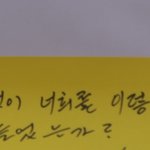 이 너희를 이렇
었는가?